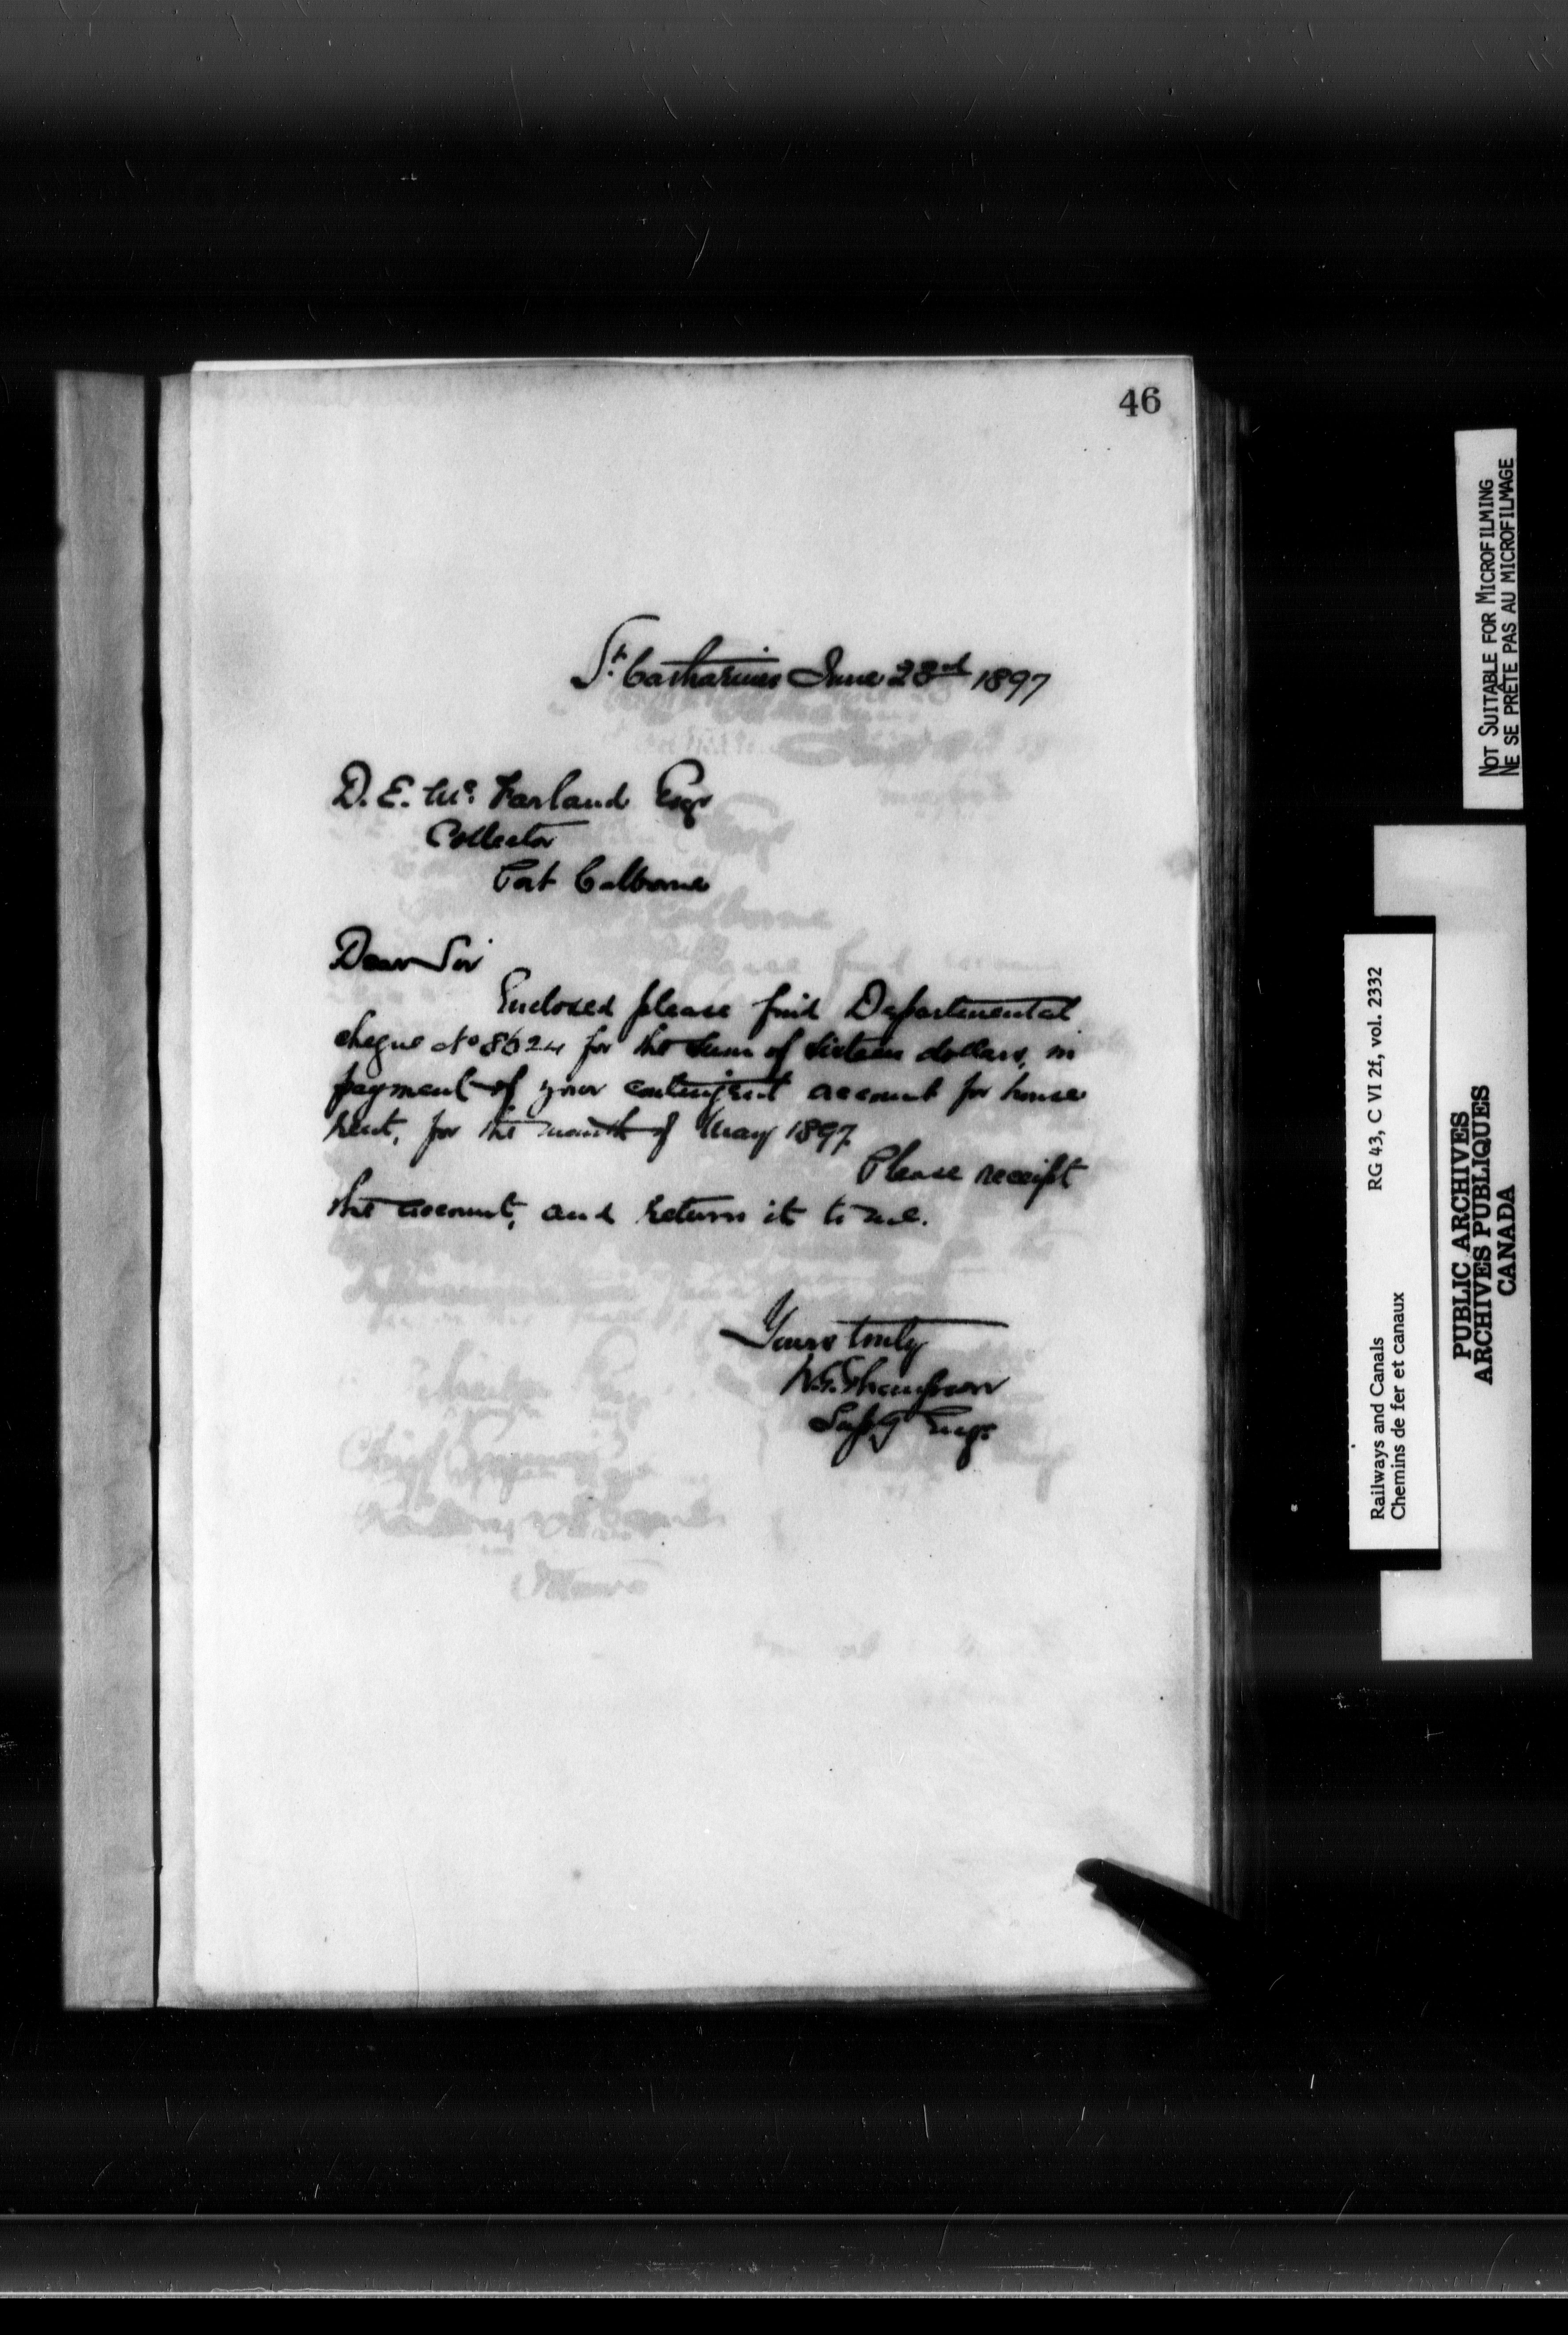 46
St. Catharines June 23rd 1897
D. E. Mc. Farland Esqr
Collector
Port Colborne
Dear Sir
Enclosed please find Departmental
cheque No 8624 for the sum of sixteen dollars, in
payment of your contingent account for house
rent, for the month of May 1897.
Please receipt
the account, and return it to me.
Yours truly
W.G. Thompson
Supg Engr.
NOT SUITABLE FOR MICROFILMING
NE SE PRÊTE PAS AU MICROFILMAGE
Railways and Canals RG 43, C VI 2f, vol. 2332
Chemins de fer et canaux
PUBLIC ARCHIVES
ARCHIVES PUBLIQUES
CANADA